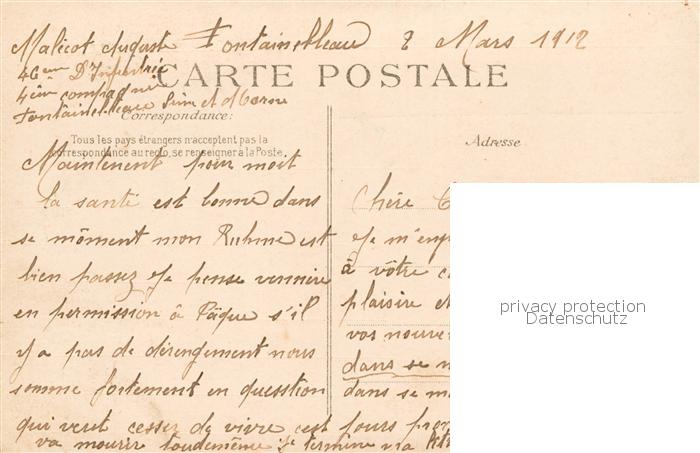 Malicot Auguste Fontainebleau 8 Mars 1912
46em D'Infantrie
4éme compagnie
Fontainebleau Seine et Marne
CARTE POSTALE
Correspondance:
Tous les pays étrangers n'acceptent pas la
correspondance au recto, se renseigner à la Poste.
Adresse
Maintenent pour moit
la santé est bonne dans
se môment mon Ruhme est
bien passez Je pense vennire
en permission à Pâque s'il
y a pas de dérengement nous
somme fortement en quesstion
qui veut cesser de vivre c'est
va mourir toudemême je termine ma
Chère
Je m'enp
à vôtre c
plaisire et
vos nouve
dans se m
dans se mo
jours pro
privacy protection
Datenschutz